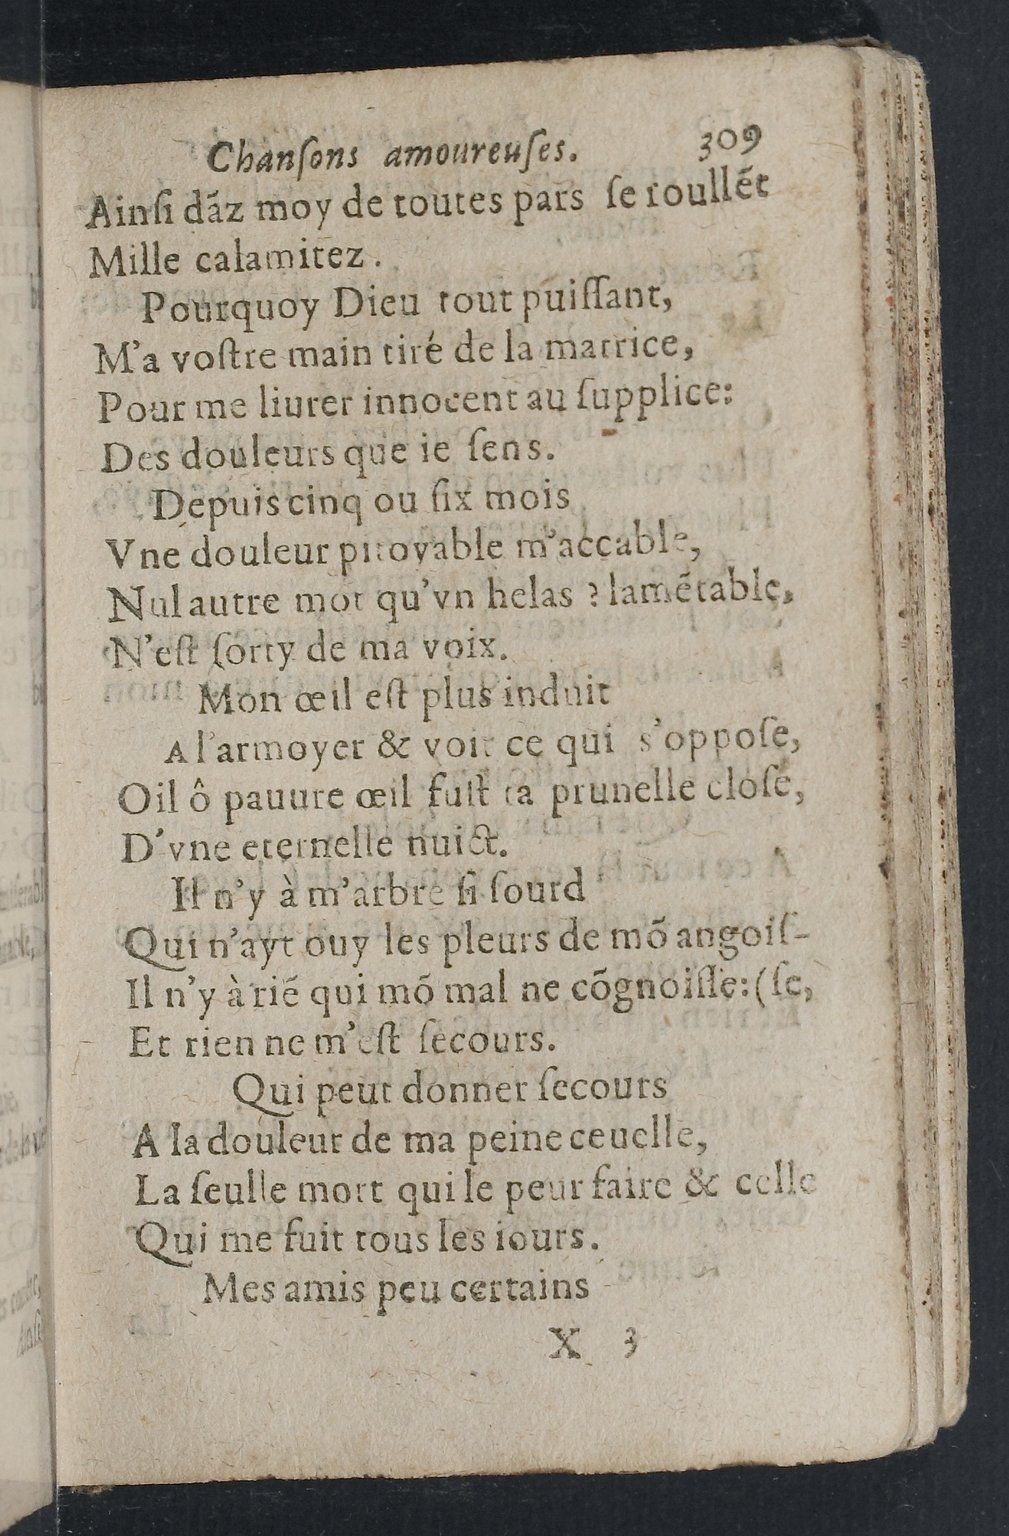 Chanſons amoureuſes. 309
Ainſi dãz moy de toutes pars ſe roullẽt
Mille calamitez.
Pourquoy Dieu tout puiſſant,
M'a voſtre main tiré de la matrice,
Pour me liurer innocent au ſupplice:
Des douleurs que ie ſens.
Depuis cinq ou ſix mois
Vne douleur pitoyable m'accable,
Nul autre mot qu'vn helas ? lamẽtable,
N'eſt ſorty de ma voix.
Mon œil eſt plus induit
A l'armoyer & voir ce qui s'oppoſe,
Oil ô pauure œil fuſt ta prunelle cloſe,
D'vne eternelle nuict.
Il n'y à m'arbre ſi ſourd
Qui n'ayt ouy les pleurs de mõ angoiſ-
Il n'y à riẽ qui mõ mal ne cõgnoiſſe: (ſe,
Et rien ne m'eſt ſecours.
Qui peut donner ſecours
A la douleur de ma peine ceuelle,
La ſeulle mort qui le peut faire & celle
Qui me fuit tous les iours.
Mes amis peu certains
X 3